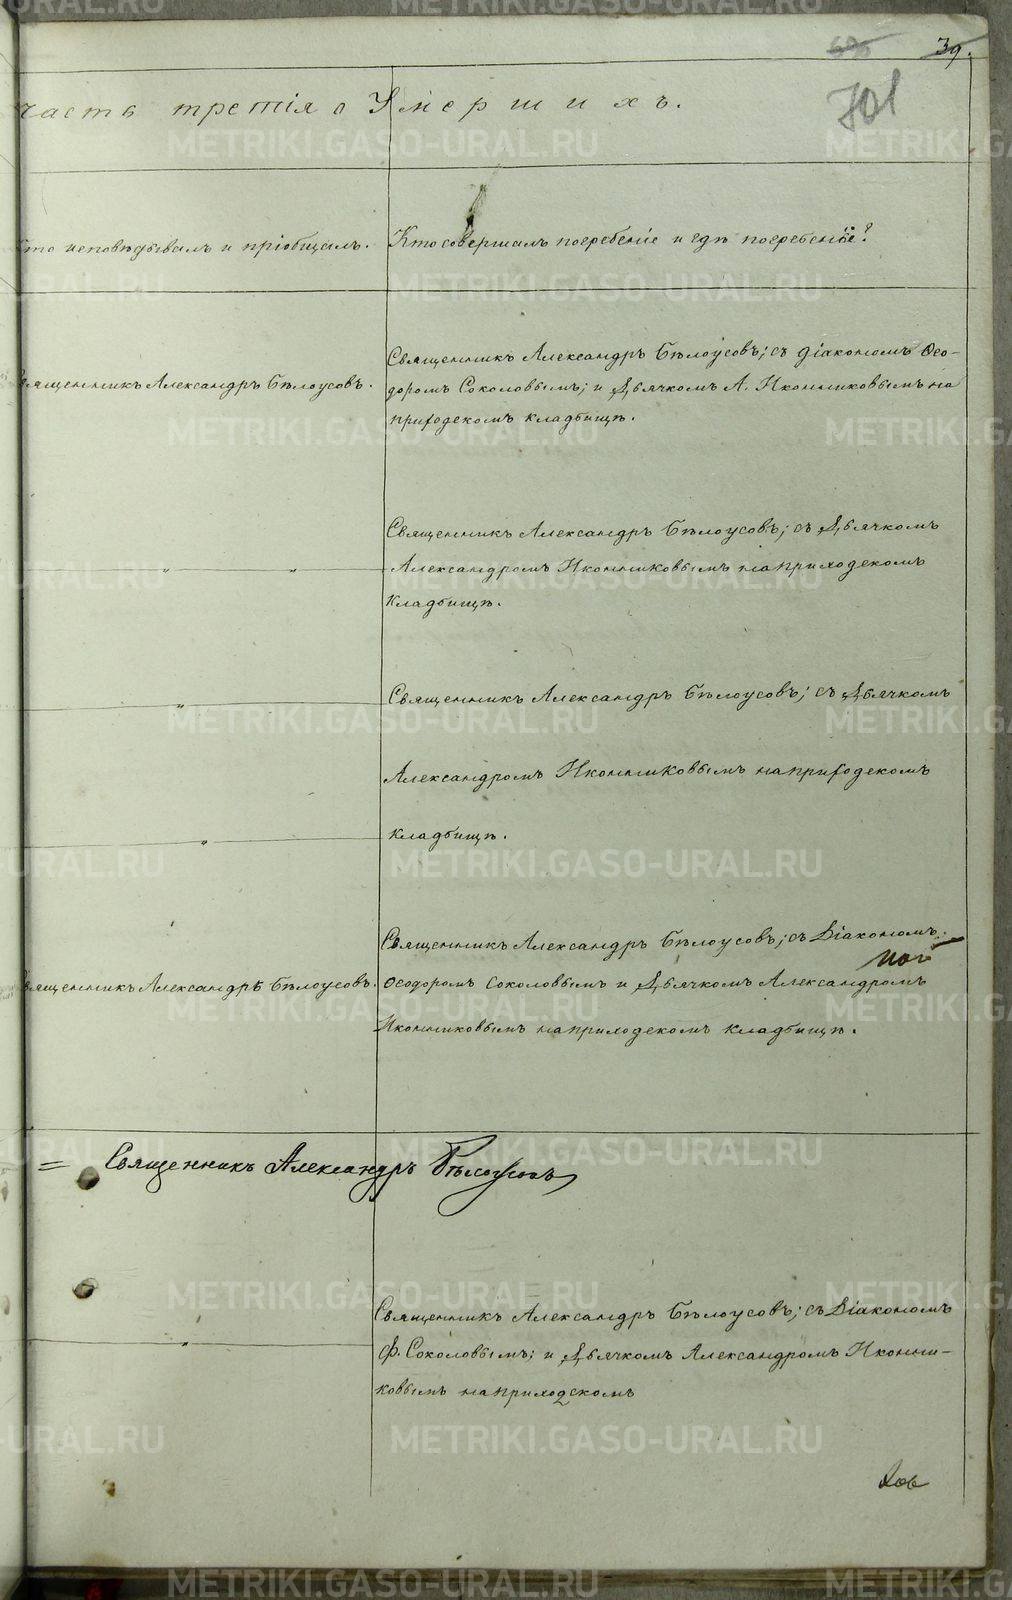 39.
701
часть третія о Умершихъ.
Кто исповѣдывалъ и пріобщалъ.
Кто совершалъ погребеніе и гдѣ погребеніе?
Священникъ Александръ Бѣлоусовъ.
Священникъ Александръ Бѣлоусовъ; съ діакономъ Ѳео-
доромъ Соколовымъ; и Дьячкомъ А. Иконниковымъ на
приходскомъ кладбищѣ.
Священникъ Александръ Бѣлоусовъ; съ Дьячкомъ
" "
Александромъ Иконниковымъ на приходскомъ
кладбищѣ.
Священникъ Александръ Бѣлоусовъ; съ Дьячкомъ
"
Александромъ Иконниковымъ на приходскомъ
кладбищѣ.
"
Священникъ Александръ Бѣлоусовъ; съ Діакономъ
Священникъ Александръ Бѣлоусовъ.
Ѳеодоромъ Соколовымъ и Дьячкомъ Александромъ
Иконниковымъ на приходскомъ кладбищѣ.
= Священникъ Александръ Бѣлоусовъ
Священникъ Александръ Бѣлоусовъ; съ Діакономъ
"
Ф. Соколовымъ; и Дьячкомъ Александромъ Иконни-
ковымъ на приходскомъ
METRIKI.GASO-URAL.RU